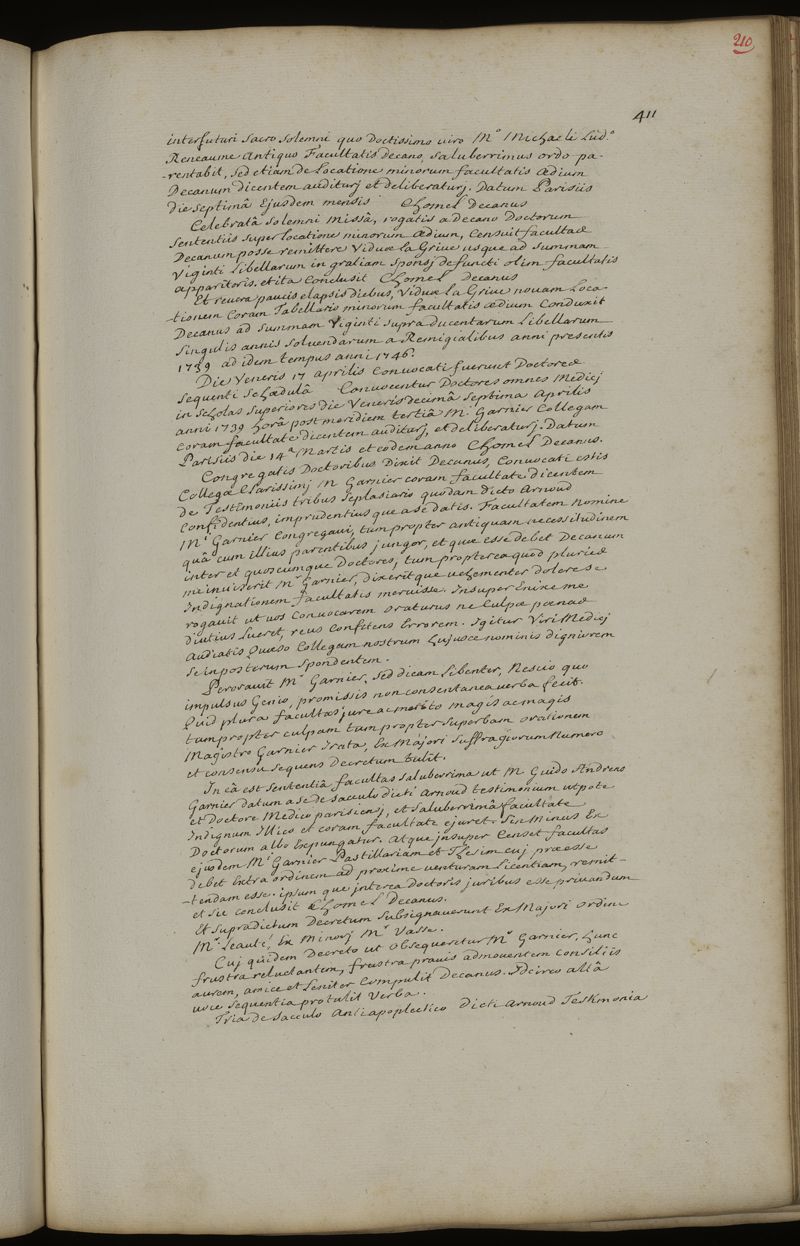 210
411
interfuturi sacro solemni quo Doctissimo viro M.º Michaeli Lud.º
Reneaume Antiquo Facultatis decano, saluberrimus ordo pa-
-rentabit, sed etiam de Locatione minorum facultatis Ædium
Decanum dicentem auditurj et deliberaturj. Datum Parisiis
die septimâ Ejusdem mensis Chomel Decanus
Celebratâ solemni Missâ, rogatis a Decano Doctorum
sententiis super locatione minorum Ædium, Censuit facultas
Decanum posse remittere Viduæ la Grive usque ad summam
Viginti Libellarum in gratiam sponsj defuncti olim facultatis
apparitoris. et ita Conclusit Chomel Decanus
Et revera paucis elapsis diebus, Viduæ la Grive novam Loca-
-tionem Coram Tabellario minorum facultatis ædium Conduxit
Decanus ad summam Viginti supra ducentarum Libellarum
singulis annis solvendarum a Remigialibus anni presentis
1739 ad idem tempus anni 1746.
Die Veneris 17 aprilis Convocati fuerunt Doctores
sequenti schædulâ Convocentur Doctores omnes Medicj
in scholas superiores die Veneris decimâ septima aprilis
anni 1739 horâ post meridiem tertiâ M.r Garnier Collegam
Coram facultate dicentem auditurj, et deliberaturj. Datum
Parisiis die 14.a Martis et eodem anno Chomel Decanus.
Congregatis Doctoribus Dixit Decanus, Convocati estis
Collegæ Clarissimj M Garnier coram facultate dicentem
De Testimoniis tribus seplasiario quodam dicto Arnoud
Confidentius, imprudentiusque a se datis. Facultatem nomine
M.r Garnier Congregavi, tum propter antiquam necessitudinem
quâ cum illius parentibus jungor, et quæ esse debet Decanum
inter et quoscumque Doctores, tum propterea quod pluries
me inviserit M.r Garnier, dixeritque vehementer dolere se
Indignationem facultatis meruisse. Insuper Enixe me
rogavit ut vos Convocarem oraturus ne Culpæ pœnas
diutius lueret, reus Confitens Errorem. Igitur Viri Medicj
Audiatis Quæso Collegam nostrum hujusce nominis digniorem
se in posterum spondentem.
Peroravit M.r Garnier, sed dicam Libenter, Nescio quo
impulsus Genio, promissis non consentanea verba fecit.
Quid plura facultas jure ac merito magis ac magis
tam propter culpam tam propter superbam orationem
Magistro Garnier Irata, Ex Majori suffragiorum Numero
et consensu sequens Decretum tulit.
In eâ est sententiâ facultas saluberrima ut M Guido Andreas
Garnier datum a se de sacculo dicti Arnoud testimonium utpote
et Doctore Medico parisiensj, et saluberrimâ facultate
Indignum Illico et coram facultate ejuret. sin minus Ex
Doctorum albo Expungatur. Atque insuper Censet facultas
ejusdem M.r Garnier Pastillariam et Thesim cuj præesse
debet Extra ordinem ad proxime venturam Licentiam, remit-
-tendam esse. ipsum que interea Doctoris juribus esse privandum
et sic conclusit Chomel Decanus.
Et supradictum Decretum subsignaverunt Ex Majori ordine
M.r Leauté, Ex Minorj M.r Vasse.
Cuj quidem Decreto ut obsequeretur M.r Garnier, hunc
frustra reluctantem, frustra pravis admoventem Consiliis
aurem, amice et leniter Compulit Decanus. Idcirco altâ
voce sequentia protulit Verba.
Tria de sacculo Antiapoplectico Dicti Arnoud Testimonia